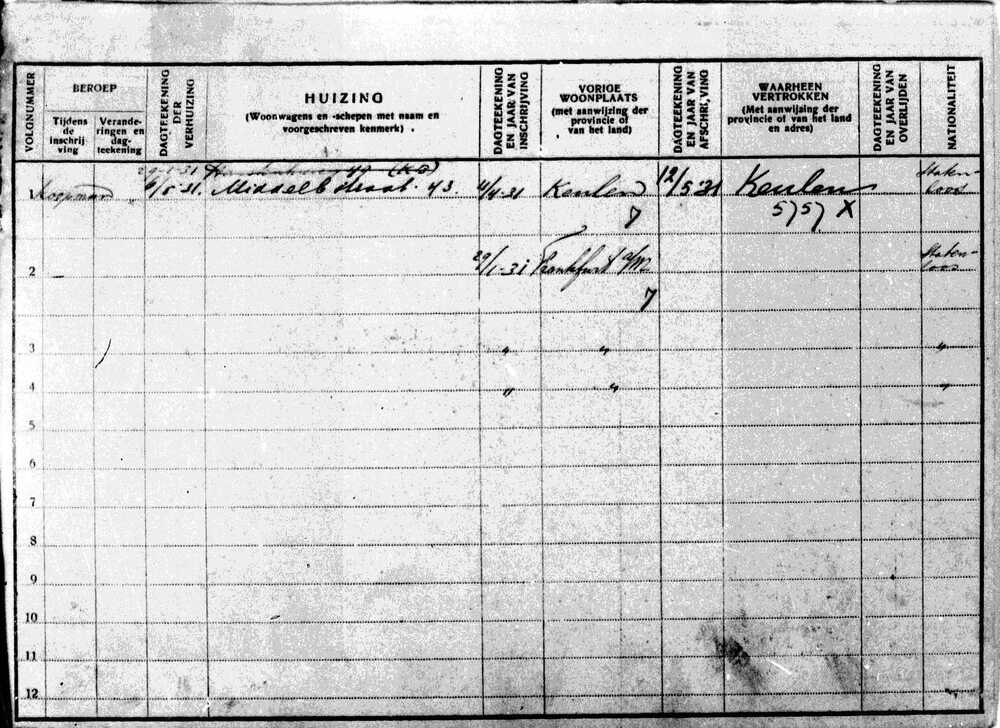 VOLGNUMMER
BEROEP
Tijdens de inschrij ving
Verande- ringen en dag- teekening
DAGTEEKENING DER VERHUIZING
HUIZING
(Woonwagens en -schepen met naam en
voorgeschreven kenmerk)
DAGTEEKENING EN JAAR VAN INSCHRIJVING
VORIGE
WOONPLAATS
(met aanwijzing der
provincie of
van het land)
DAGTEEKENING EN JAAR VAN AFSCHRIJVING
WAARHEEN
VERTROKKEN
(Met aanwijzing der
provincie of van het land
en adres)
DAGTEEKENING EN JAAR VAN OVERLIJDEN
NATIONALITEIT
29-1-31 49
1 Koopman 6/5-31. Middelb straat. 43. 11/4-31 Keulen 12/5-31 Keulen Staten- loos
7 5757 X
2 29/1-31 Frankfurt a/M Staten- loos
7
3 " " "
4 " " "
5
6
7
8
9
10
11
12